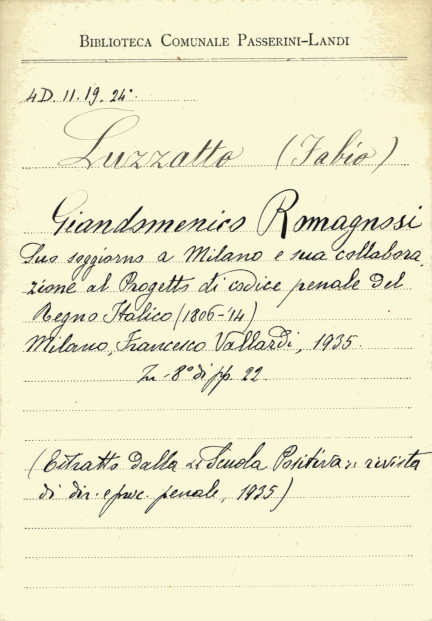 BIBLIOTECA COMUNALE PASSERINI-LANDI
4D. 11. 19. 24°
Luzzatto (Fabio)
Giandomenico Romagnosi
Suo soggiorno a Milano e sua collabora-
zione al Progetto di codice penale del
Regno Italico (1806-'14)
Milano, Francesco Vallardi, 1935
In-8° di pp. 22
(Estratto dalla "Scuola Positiva" rivista
di dir. e proc. penale, 1935)